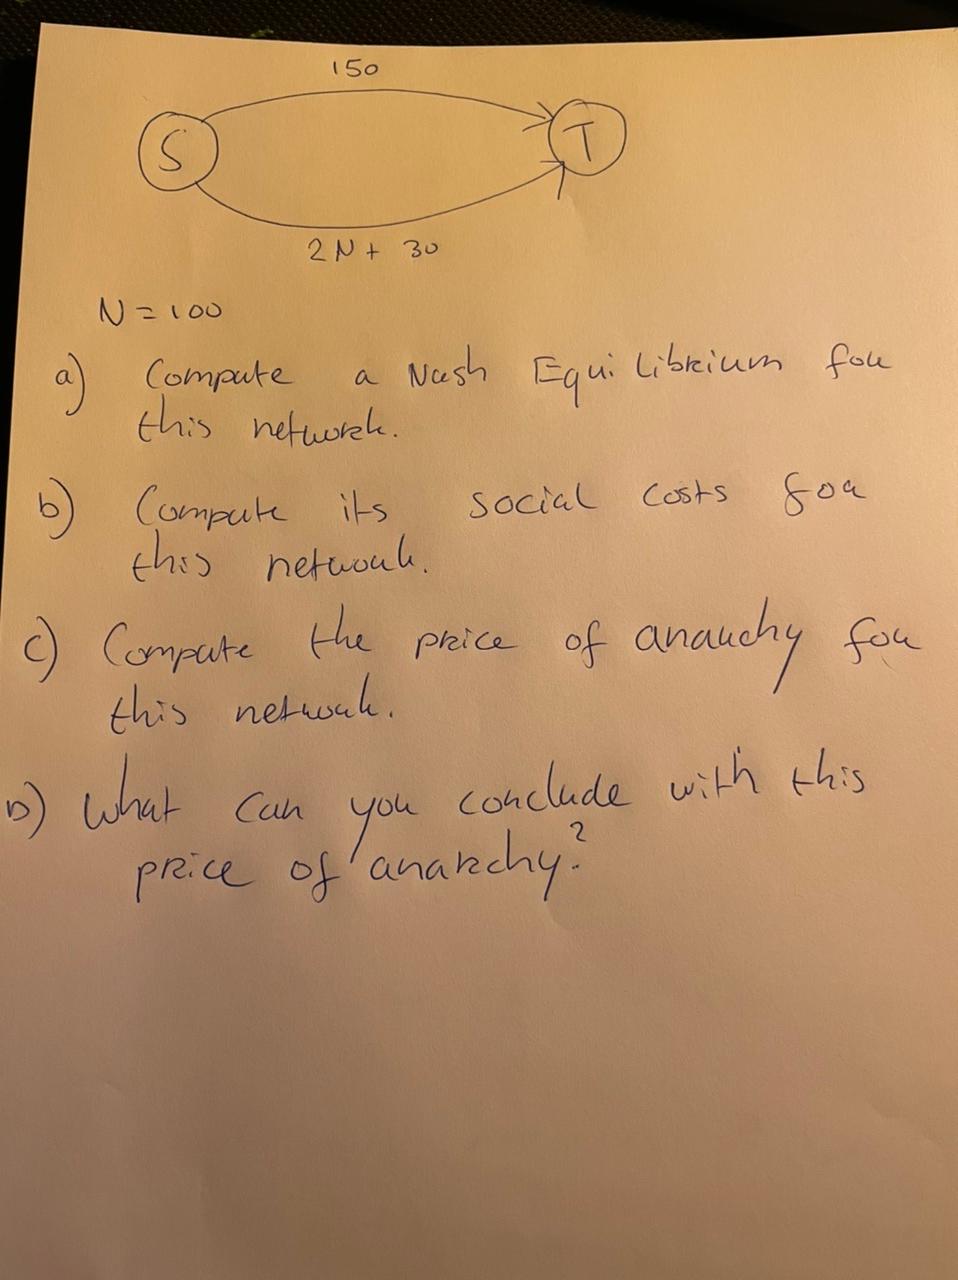 150
S
T
2N + 30
N = 100
a) Compute a Nash Equilibrium for
this network.
b) Compute its social costs for
this network.
c) Compute the price of anarchy for
this network.
D) What can you conclude with this
price of anarchy?